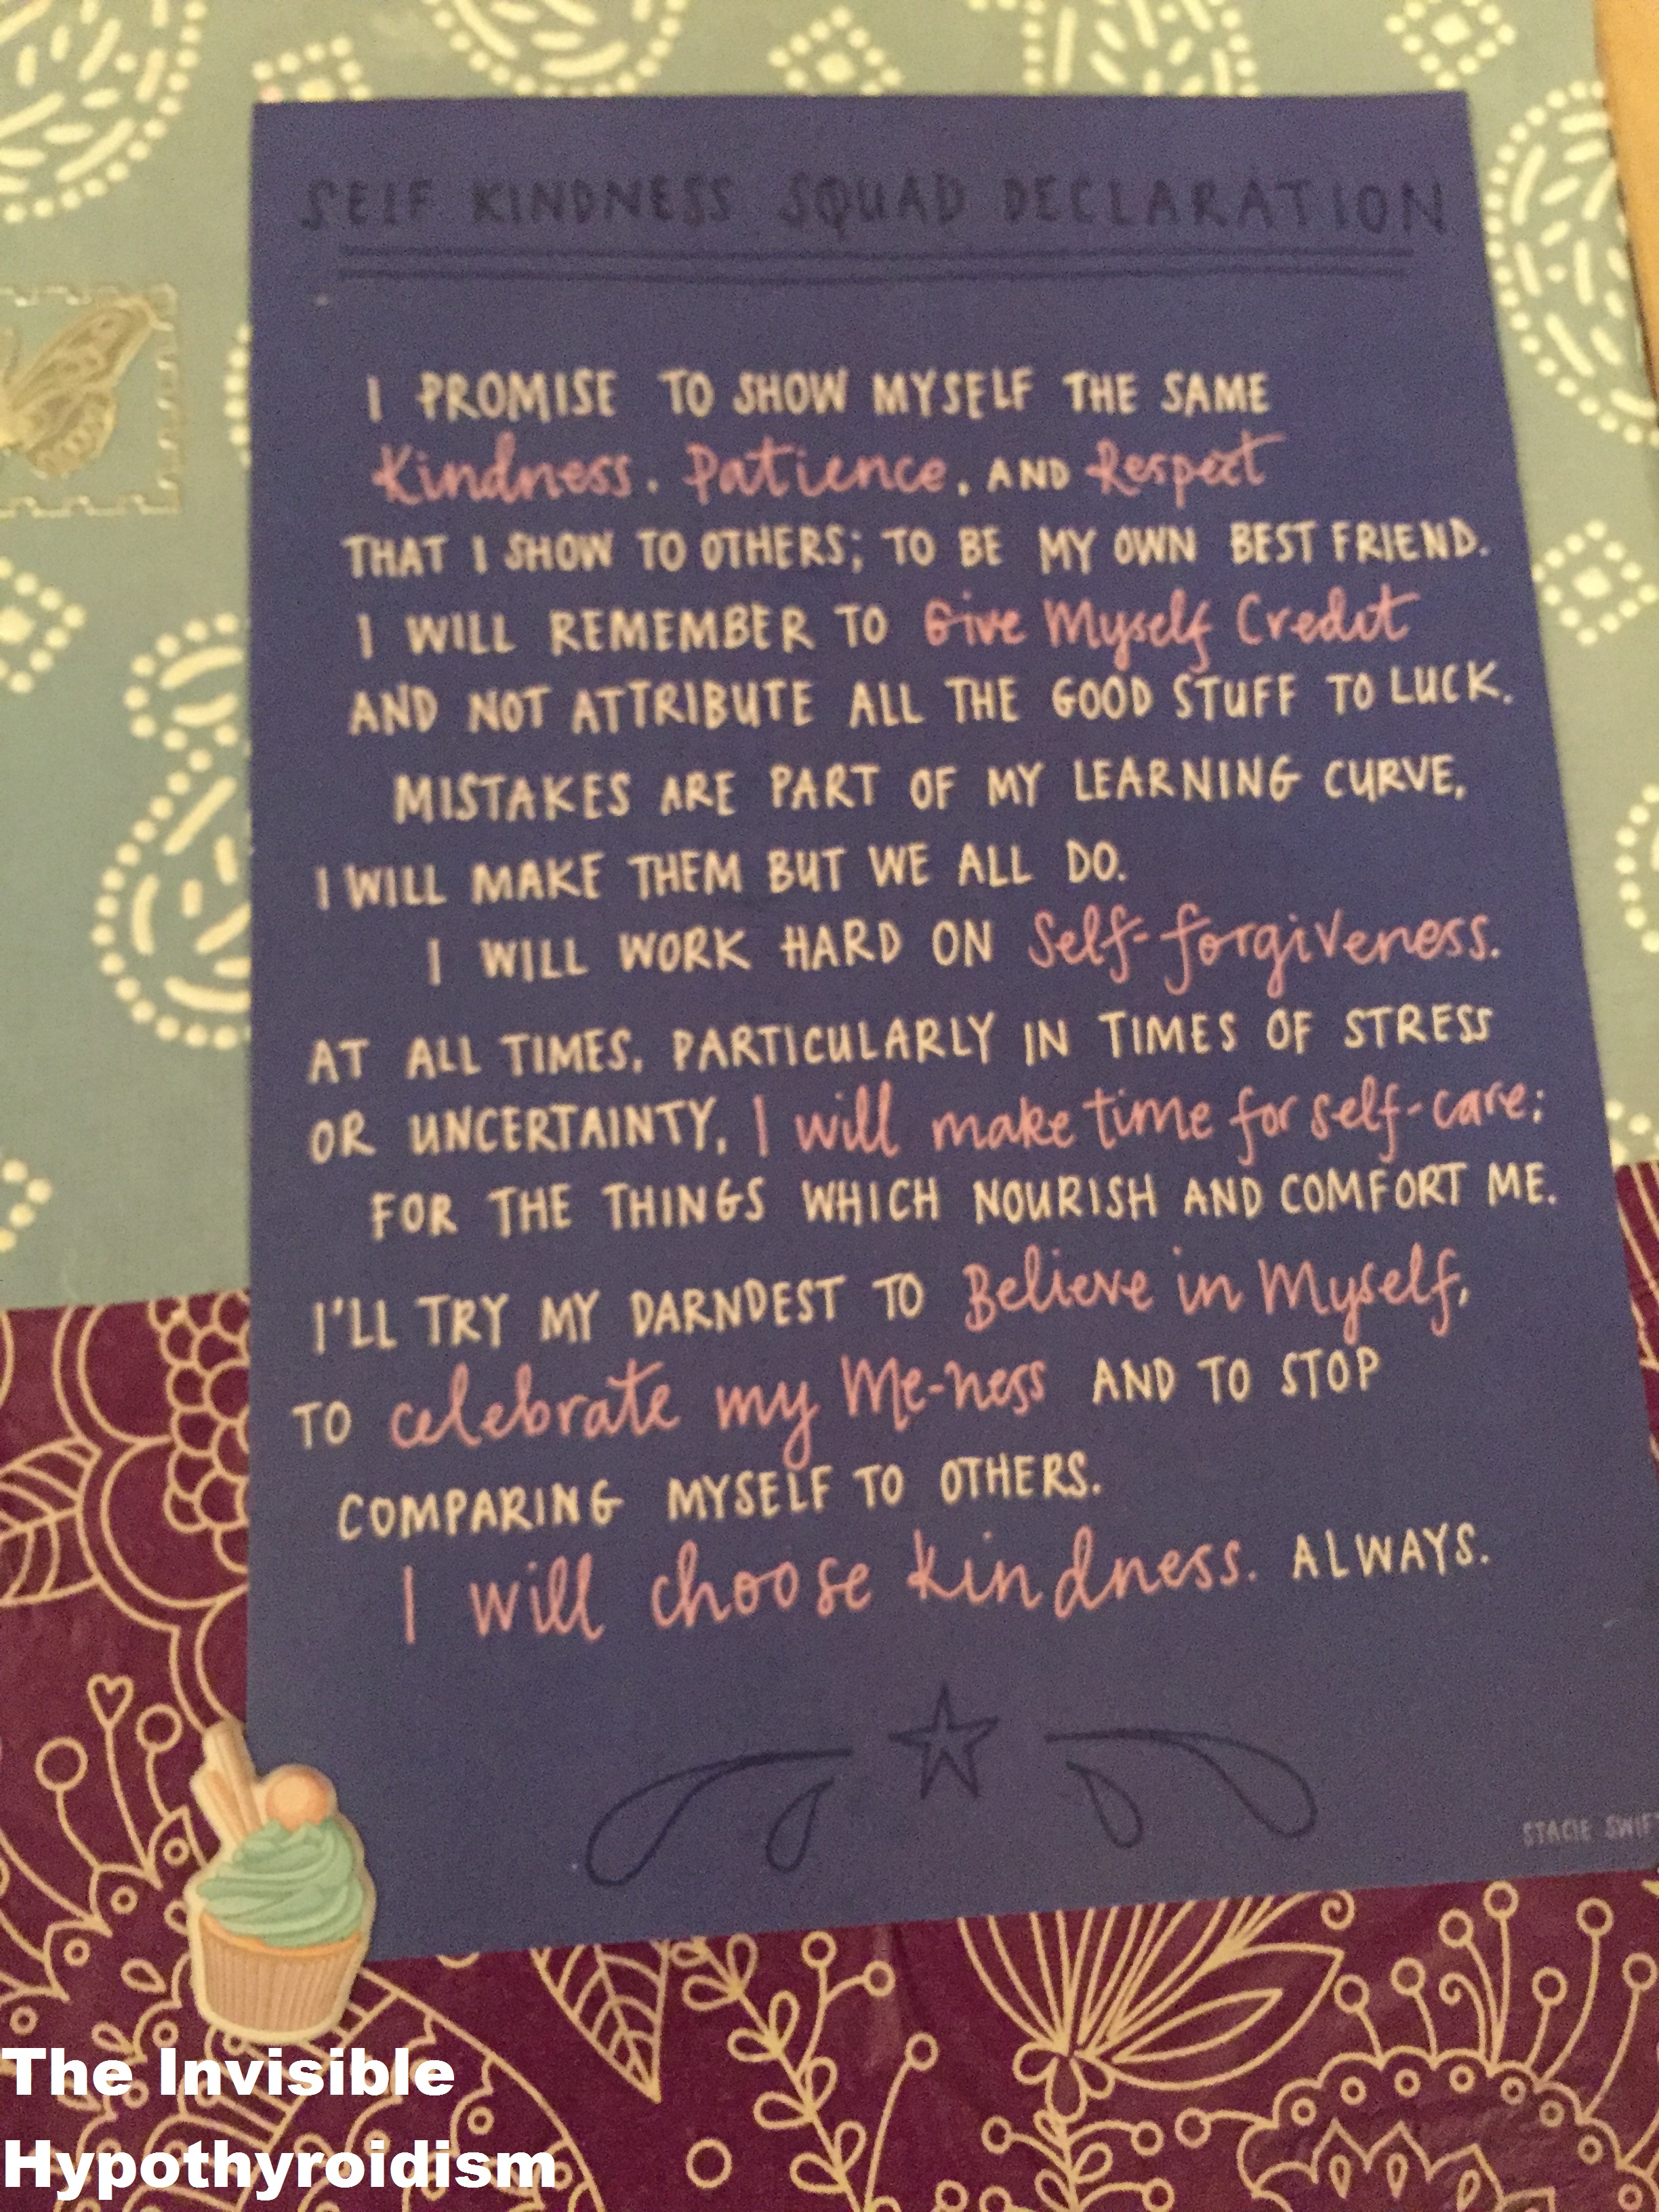 SELF KINDNESS SQUAD DECLARATION
I PROMISE TO SHOW MYSELF THE SAME
Kindness, Patience, AND Respect
THAT I SHOW TO OTHERS; TO BE MY OWN BEST FRIEND.
I WILL REMEMBER TO Give Myself Credit
AND NOT ATTRIBUTE ALL THE GOOD STUFF TO LUCK.
MISTAKES ARE PART OF MY LEARNING CURVE,
I WILL MAKE THEM BUT WE ALL DO.
I WILL WORK HARD ON Self-forgiveness.
AT ALL TIMES, PARTICULARLY IN TIMES OF STRESS
OR UNCERTAINTY, I will make time for self-care;
FOR THE THINGS WHICH NOURISH AND COMFORT ME.
I'LL TRY MY DARNDEST TO Believe in Myself,
TO celebrate my Me-ness AND TO STOP
COMPARING MYSELF TO OTHERS.
I will choose kindness. ALWAYS.
STACIE SWIF
The Invisible
Hypothyroidism